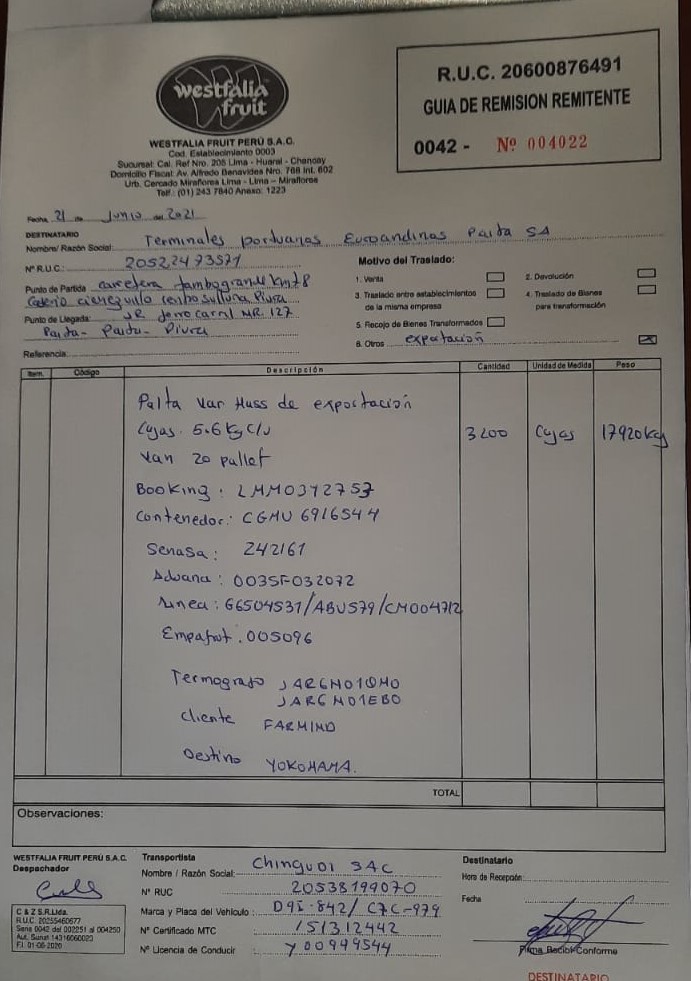 westfalia
fruit
WESTFALIA FRUIT PERÚ S.A.C.
Cod. Establecimiento 0003
Sucursal: Cal. Ref Nro. 205 Lima - Huaral - Chancay
Domicilio Fiscal: Av. Alfredo Benavides Nro. 768 Int. 602
Urb. Cercado Miraflores Lima - Lima - Miraflores
Telf.: (01) 243 7840 Anexo: 1223
R.U.C. 20600876491
GUIA DE REMISION REMITENTE
0042 - Nº 004022
Fecha, 21 de Junio del 2021
DESTINATARIO
Nombre/ Razón Social: Terminales portuarios Euroandinos Paita SA
Nº R.U.C.: 20522473571
Punto de Partida carretera tambogrande Km 78
Caserio cieneguillo centro sullana Piura
Punto de Llegada: JR ferrocarril NR. 127
Paita - Paita - Piura
Referencia:
Motivo del Traslado:
1. Venta
2. Devolución
3. Traslado entre establecimientos de la misma empresa
4. Traslado de Bienes para transformación
5. Recojo de Bienes Transformados
6. Otros exportación X
Item. Código Descripción Cantidad Unidad de Medida Peso
Palta Var Hass de exportación
Cajas 5.6 kg c/u 3200 Cajas 17920 kg
Van 20 pallet
Booking: LMM0342757
Contenedor: CGMU 6916544
Senasa: 242161
Aduana: 0035F032072
Linea: G6504531/ABUS79/CM004712
Empafrut. 005096
Termografo JARGN01QMO
JARGN01EBO
Cliente FARMIND
Destino YOKOHAMA.
TOTAL
Observaciones:
WESTFALIA FRUIT PERÚ S.A.C.
Despachador
C & Z S.R.Ltda.
R.U.C. 20255460577
Serie 0042 del 002251 al 004250
Aut. Sunat 14316060023
F.I. 01-06-2020
Transportista
Nombre / Razón Social: Chingudi SAC
Nº RUC 20538199070
Marca y Placa del Vehículo: D9I-842/ C7C-979
Nº Certificado MTC 151312442
Nº Licencia de Conducir Y00949544
Destinatario
Hora de Recepción:
Fecha
Firma Recibí Conforme
DESTINATARIO